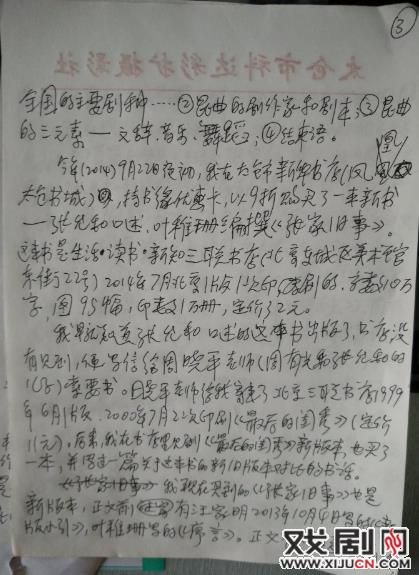 ③
太仓市科达彩扩摄影社
全国的主要剧种……②昆曲的剧作家和剧本;③昆曲
的三元素——文辞、音乐、舞蹈;④结束语。
今年(2014)9月22日夜初,我在太仓新华书店(凤凰
太仓书城),持书缘优惠卡,以9折购买了一本新书
——张允和口述、叶稚珊编撰《张家旧事》。
这本书是生活·读书·新知三联书店(北京东城区美术馆
东街22号)2014年7月北京1版1次印刷的,字数10万
字,图95幅,印数1万册,定价32元。
我早就知道张允和口述的这本书出版了,书店没
有见到,便写信给周晓平老师(周有光和张允和的
儿子)索要书。周晓平老师寄了北京三联书店1999
年6月1版、2000年7月2次印刷《最后的闺秀》(定价
元)。后来,我在书店见到《最后的闺秀》新版本,也买了
一本,并写过一篇关于这本书的新旧版本对比的书话。
我现在买到的《张家旧事》也是
新版本,正文前有汪家明2013年10月4日写的《
版小引》,叶稚珊写的《序言》。正文
戏剧网
WWW.XIJUCN.COM